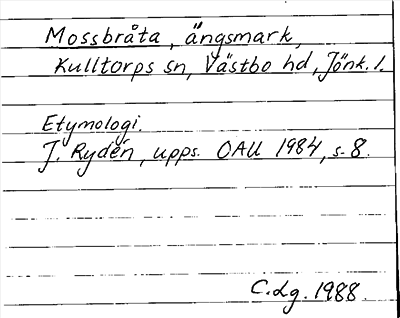 Mossbråta, ängsmark,
Kulltorps sn, Västbo hd, Jönk. l.
Etymologi.
J. Rydén, upps. OAU 1984, s. 8.
C. Lg. 1988.